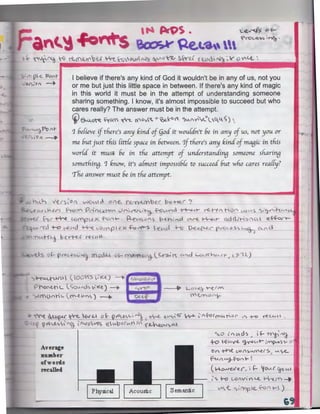 IN ADS.
Fancy fonts Boost Recall !!!
Levels of
Processing
If trying to remember the following quote after reading it once:
Simple Font
version →
I believe if there's any kind of God it wouldn't be in any of us, not you
or me but just this little space in between. If there's any kind of magic
in this world it must be in the attempt of understanding someone
sharing something. I know, it's almost impossible to succeed but who
cares really? The answer must be in the attempt.
Quote from the movie "Before Sunrise" (1995):
Fancy Font
version →
I believe if there's any kind of God it wouldn't be in any of us, not you or
me but just this little space in between. If there's any kind of magic in this
world it must be in the attempt of understanding someone sharing
something. I know, it's almost impossible to succeed but who cares really?
The answer must be in the attempt.
Which version would one remember better?
Researchers from Princeton University found that retention was significantly
for the complex font. Reasons behind are that additional effort
required to read the complex fonts lead to Deeper processing, and
better recall.
Levels of processing model of memory (Craik and Lockhart, 1972)
Structural (Looks like) → Shallow
Phonetic (Sounds like) →
Semantic (means) → Deep → Long term
memory
→ the deeper the level of processing, the easier the information is to recall.
Deep processing involves elaboration rehearsal
Average
number
of words
recalled
Physical Acoustic Semantic
So in ads, if trying
to leave great impact
on the consumers, use
Fancy Font!
(However, if your goal
is to convince them →
use simple fonts)
69